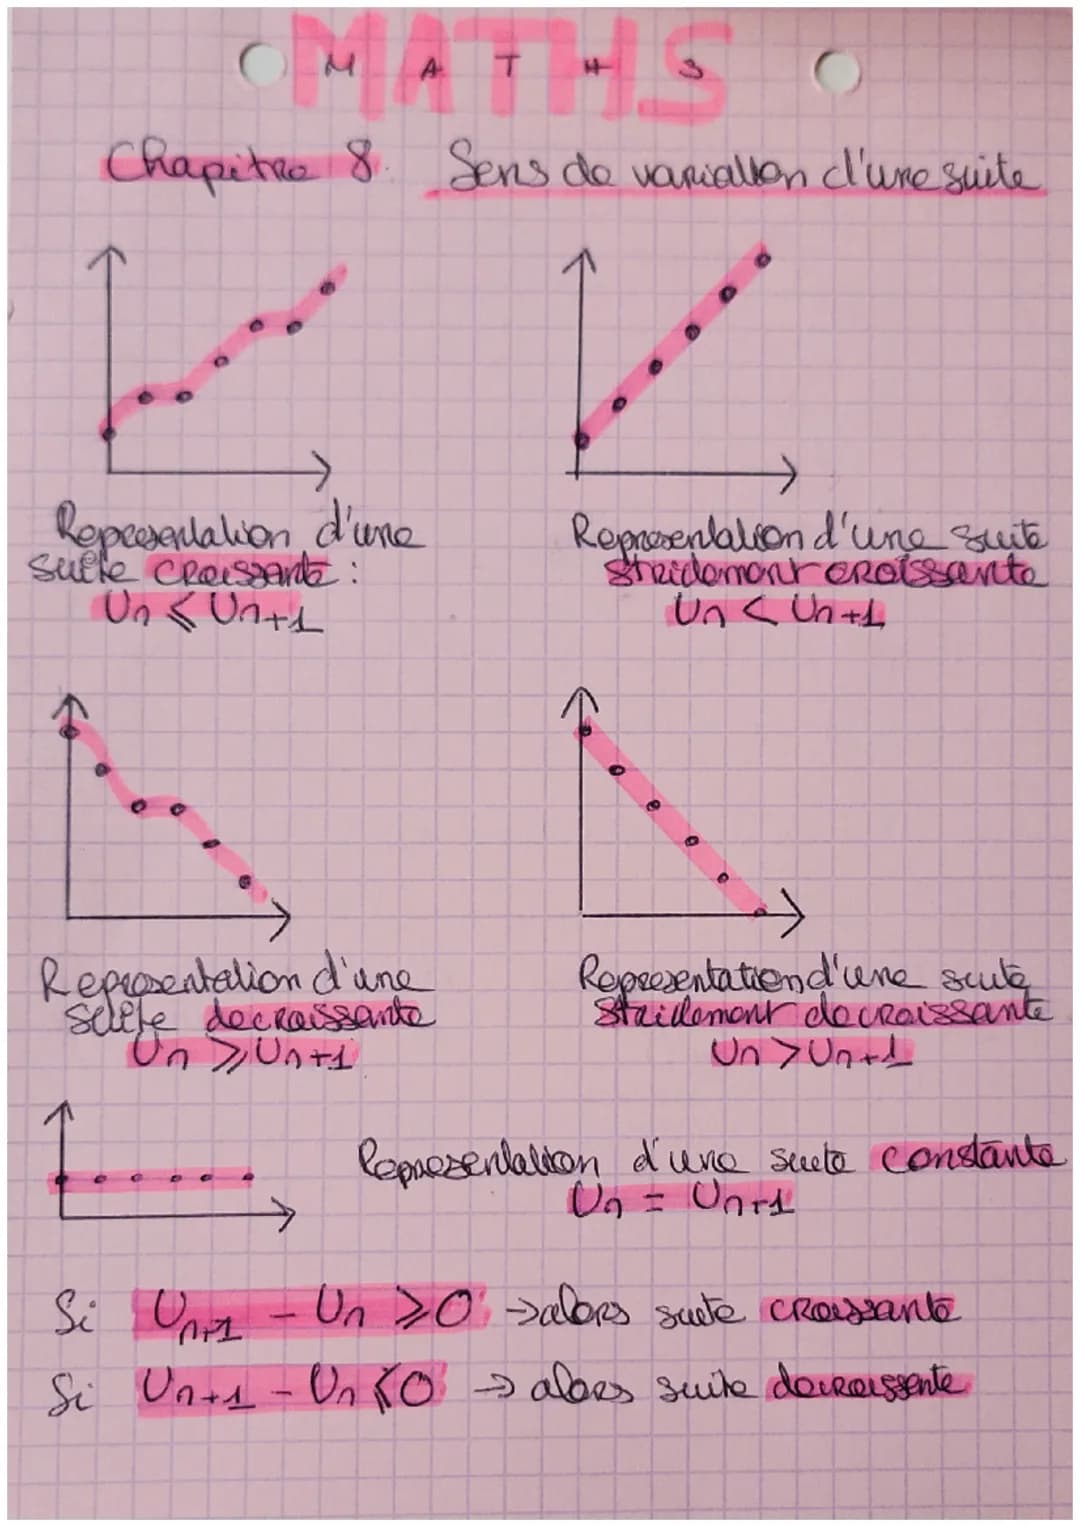 MATHS
M A T H S
Chapitre 8. Sens de variation d'une suite
Representation d'une
suite croissante :
Un ⩽ Un+1
Representation d'une suite
strictement croissante
Un < Un+1
Representation d'une
suite decroissante
Un ⩾ Un+1
Representation d'une suite
strictement decroissante
Un > Un+1
Representation d'une suite constante
Un = Un+1
Si Un+1 - Un ⩾ 0 → alors suite croissante
Si Un+1 - Un ⩽ 0 → alors suite decroissante